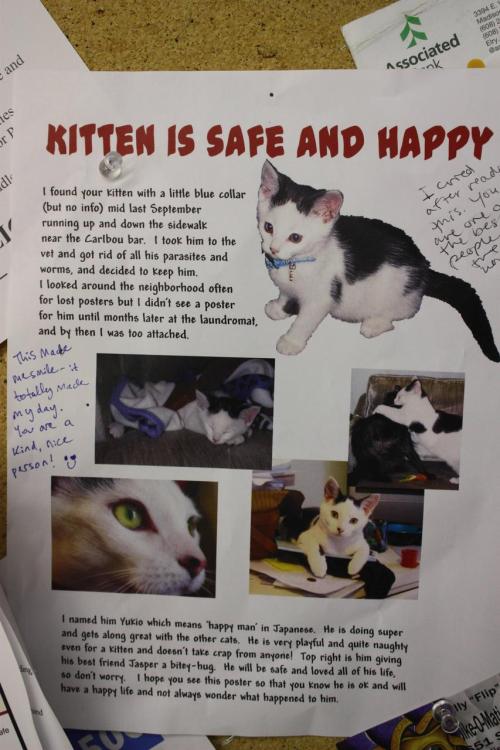 and
3394 E.
Madison
(608)
(608)
Associated
KITTEN IS SAFE AND HAPPY
I found your kitten with a little blue collar
(but no info) mid last September
running up and down the sidewalk
near the Caribou bar. I took him to the
vet and got rid of all his parasites and
worms, and decided to keep him.
I looked around the neighborhood often
for lost posters but I didn't see a poster
for him until months later at the laundromat,
and by then I was too attached.
I cried
after reading
this. You
are one of
the best
people
This made
me smile - it
totally made
my day.
You are a
kind, nice
person!
I named him Yukio which means 'happy man' in Japanese. He is doing super
and gets along great with the other cats. He is very playful and quite naughty
even for a kitten and doesn't take crap from anyone! Top right is him giving
his best friend Jasper a bitey-hug. He will be safe and loved all of his life,
so don't worry. I hope you see this poster so you know he is ok and will
have a happy life and not always wonder what happened to him.
"Flip"